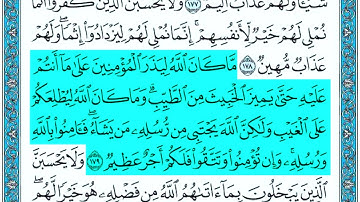 شَيْـًٔا وَلَهُمْ عَذَابٌ أَلِيمٌ ١٧٧ وَلَا يَحْسَبَنَّ ٱلَّذِينَ كَفَرُوٓا۟ أَنَّمَا
نُمْلِى لَهُمْ خَيْرٌ لِّأَنفُسِهِمْ ۚ إِنَّمَا نُمْلِى لَهُمْ لِيَزْدَادُوٓا۟ إِثْمًا ۚ وَلَهُمْ
عَذَابٌ مُّهِينٌ ١٧٨ مَّا كَانَ ٱللَّهُ لِيَذَرَ ٱلْمُؤْمِنِينَ عَلَىٰ مَآ أَنتُمْ
عَلَيْهِ حَتَّىٰ يَمِيزَ ٱلْخَبِيثَ مِنَ ٱلطَّيِّبِ ۗ وَمَا كَانَ ٱللَّهُ لِيُطْلِعَكُمْ
عَلَى ٱلْغَيْبِ وَلَـٰكِنَّ ٱللَّهَ يَجْتَبِى مِن رُّسُلِهِۦ مَن يَشَآءُ ۖ فَـَٔامِنُوا۟ بِٱللَّهِ
وَرُسُلِهِۦ ۚ وَإِن تُؤْمِنُوا۟ وَتَتَّقُوا۟ فَلَكُمْ أَجْرٌ عَظِيمٌ ١٧٩ وَلَا يَحْسَبَنَّ
ٱلَّذِينَ يَبْخَلُونَ بِمَآ ءَاتَىٰهُمُ ٱللَّهُ مِن فَضْلِهِۦ هُوَ خَيْرًا لَّهُم ۖ